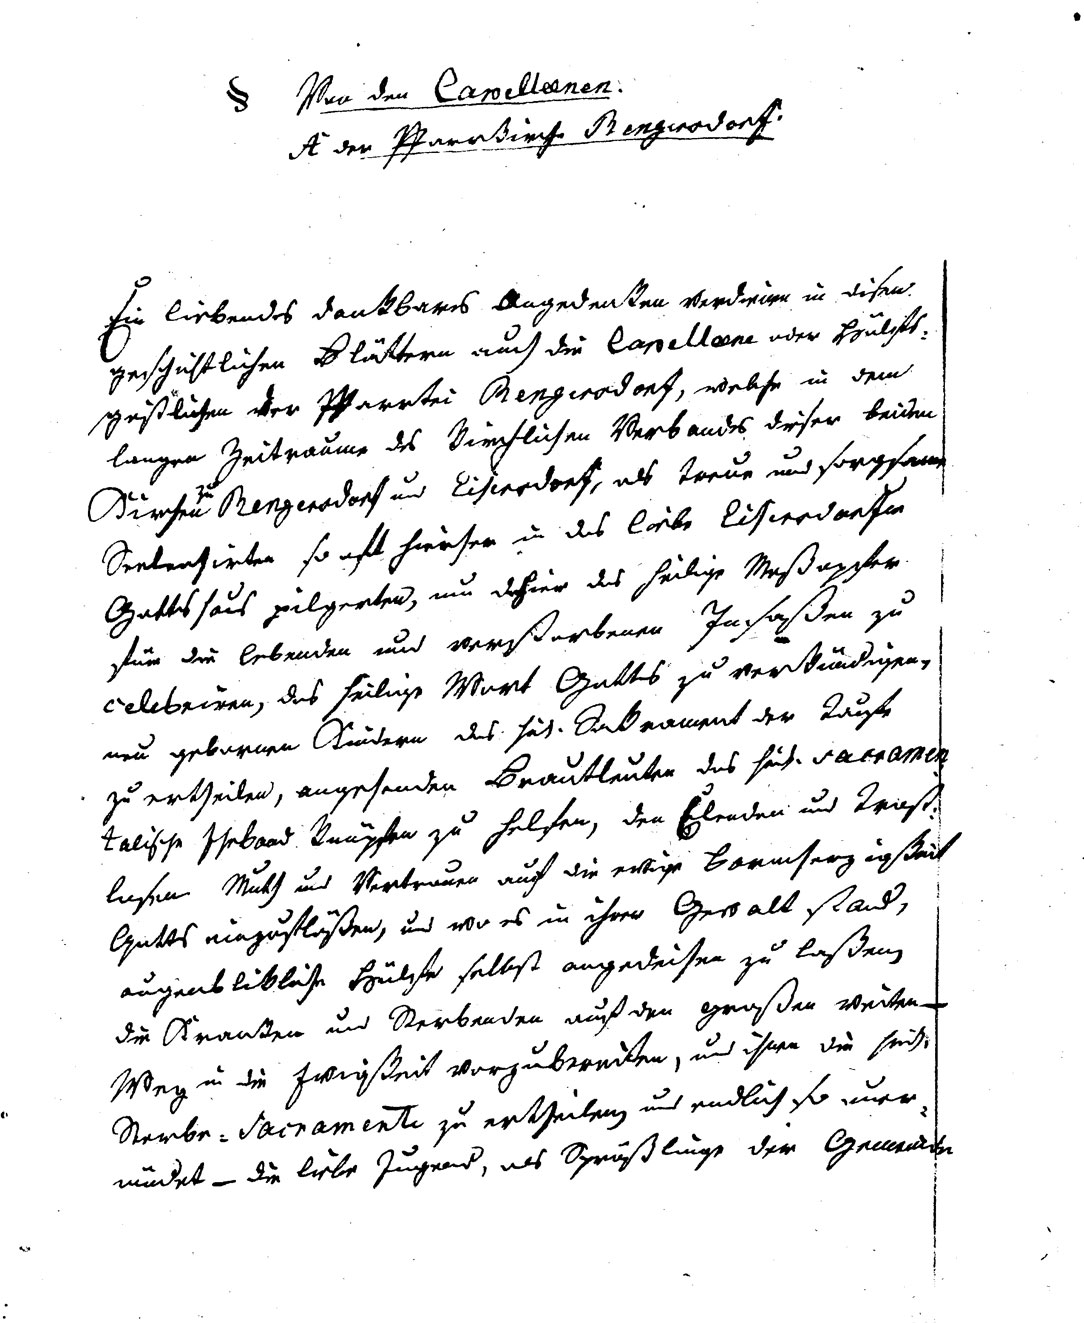 § Von den Capellænen.
A der Pfarrkirche Rengersdorf.
Ein liebendes dankbares Angedenken verdienen in diesen
geschichtlichen Blättern auch die Capellæne oder Hülfs-
geistlichen der Pfarrtei Rengersdorf, welche in dem
langen Zeitraume des kirchlichen Verbandes dieser beiden
Kirchen zu Rengersdorf und Eisersdorf, als treue und sorgsame
Seelenhirten so oft hierher in das liebe Eisersdorfer
Gotteshaus pilgerten, um dahier das heilige Meßopfer
für die lebenden und verstorbenen Insaßen zu
celebriren, das heilige Wort Gottes zu verkündigen,
neu gebornen Kindern das heil. Sakrament der Taufe
zu ertheilen, angehenden Brautleuten das heil. sacramen
talische Eheband knüpfen zu helfen, den Elenden und Trost-
losen Muth und Vertrauen auf die ewige Barmherzigkeit
Gottes einzuflößen, und wo es in ihrer Gewalt stand,
augenblikliche Hülfe selbst angedeihen zu laßen,
die Kranken und Sterbenden auf den großen weiten
Weg in die Ewigkeit vorzubereiten, und ihnen die heil.
Sterbe-Sacramente zu ertheilen, und endlich so uner-
müdet – die liebe Jugend, als Sprößlinge der Gemeinde